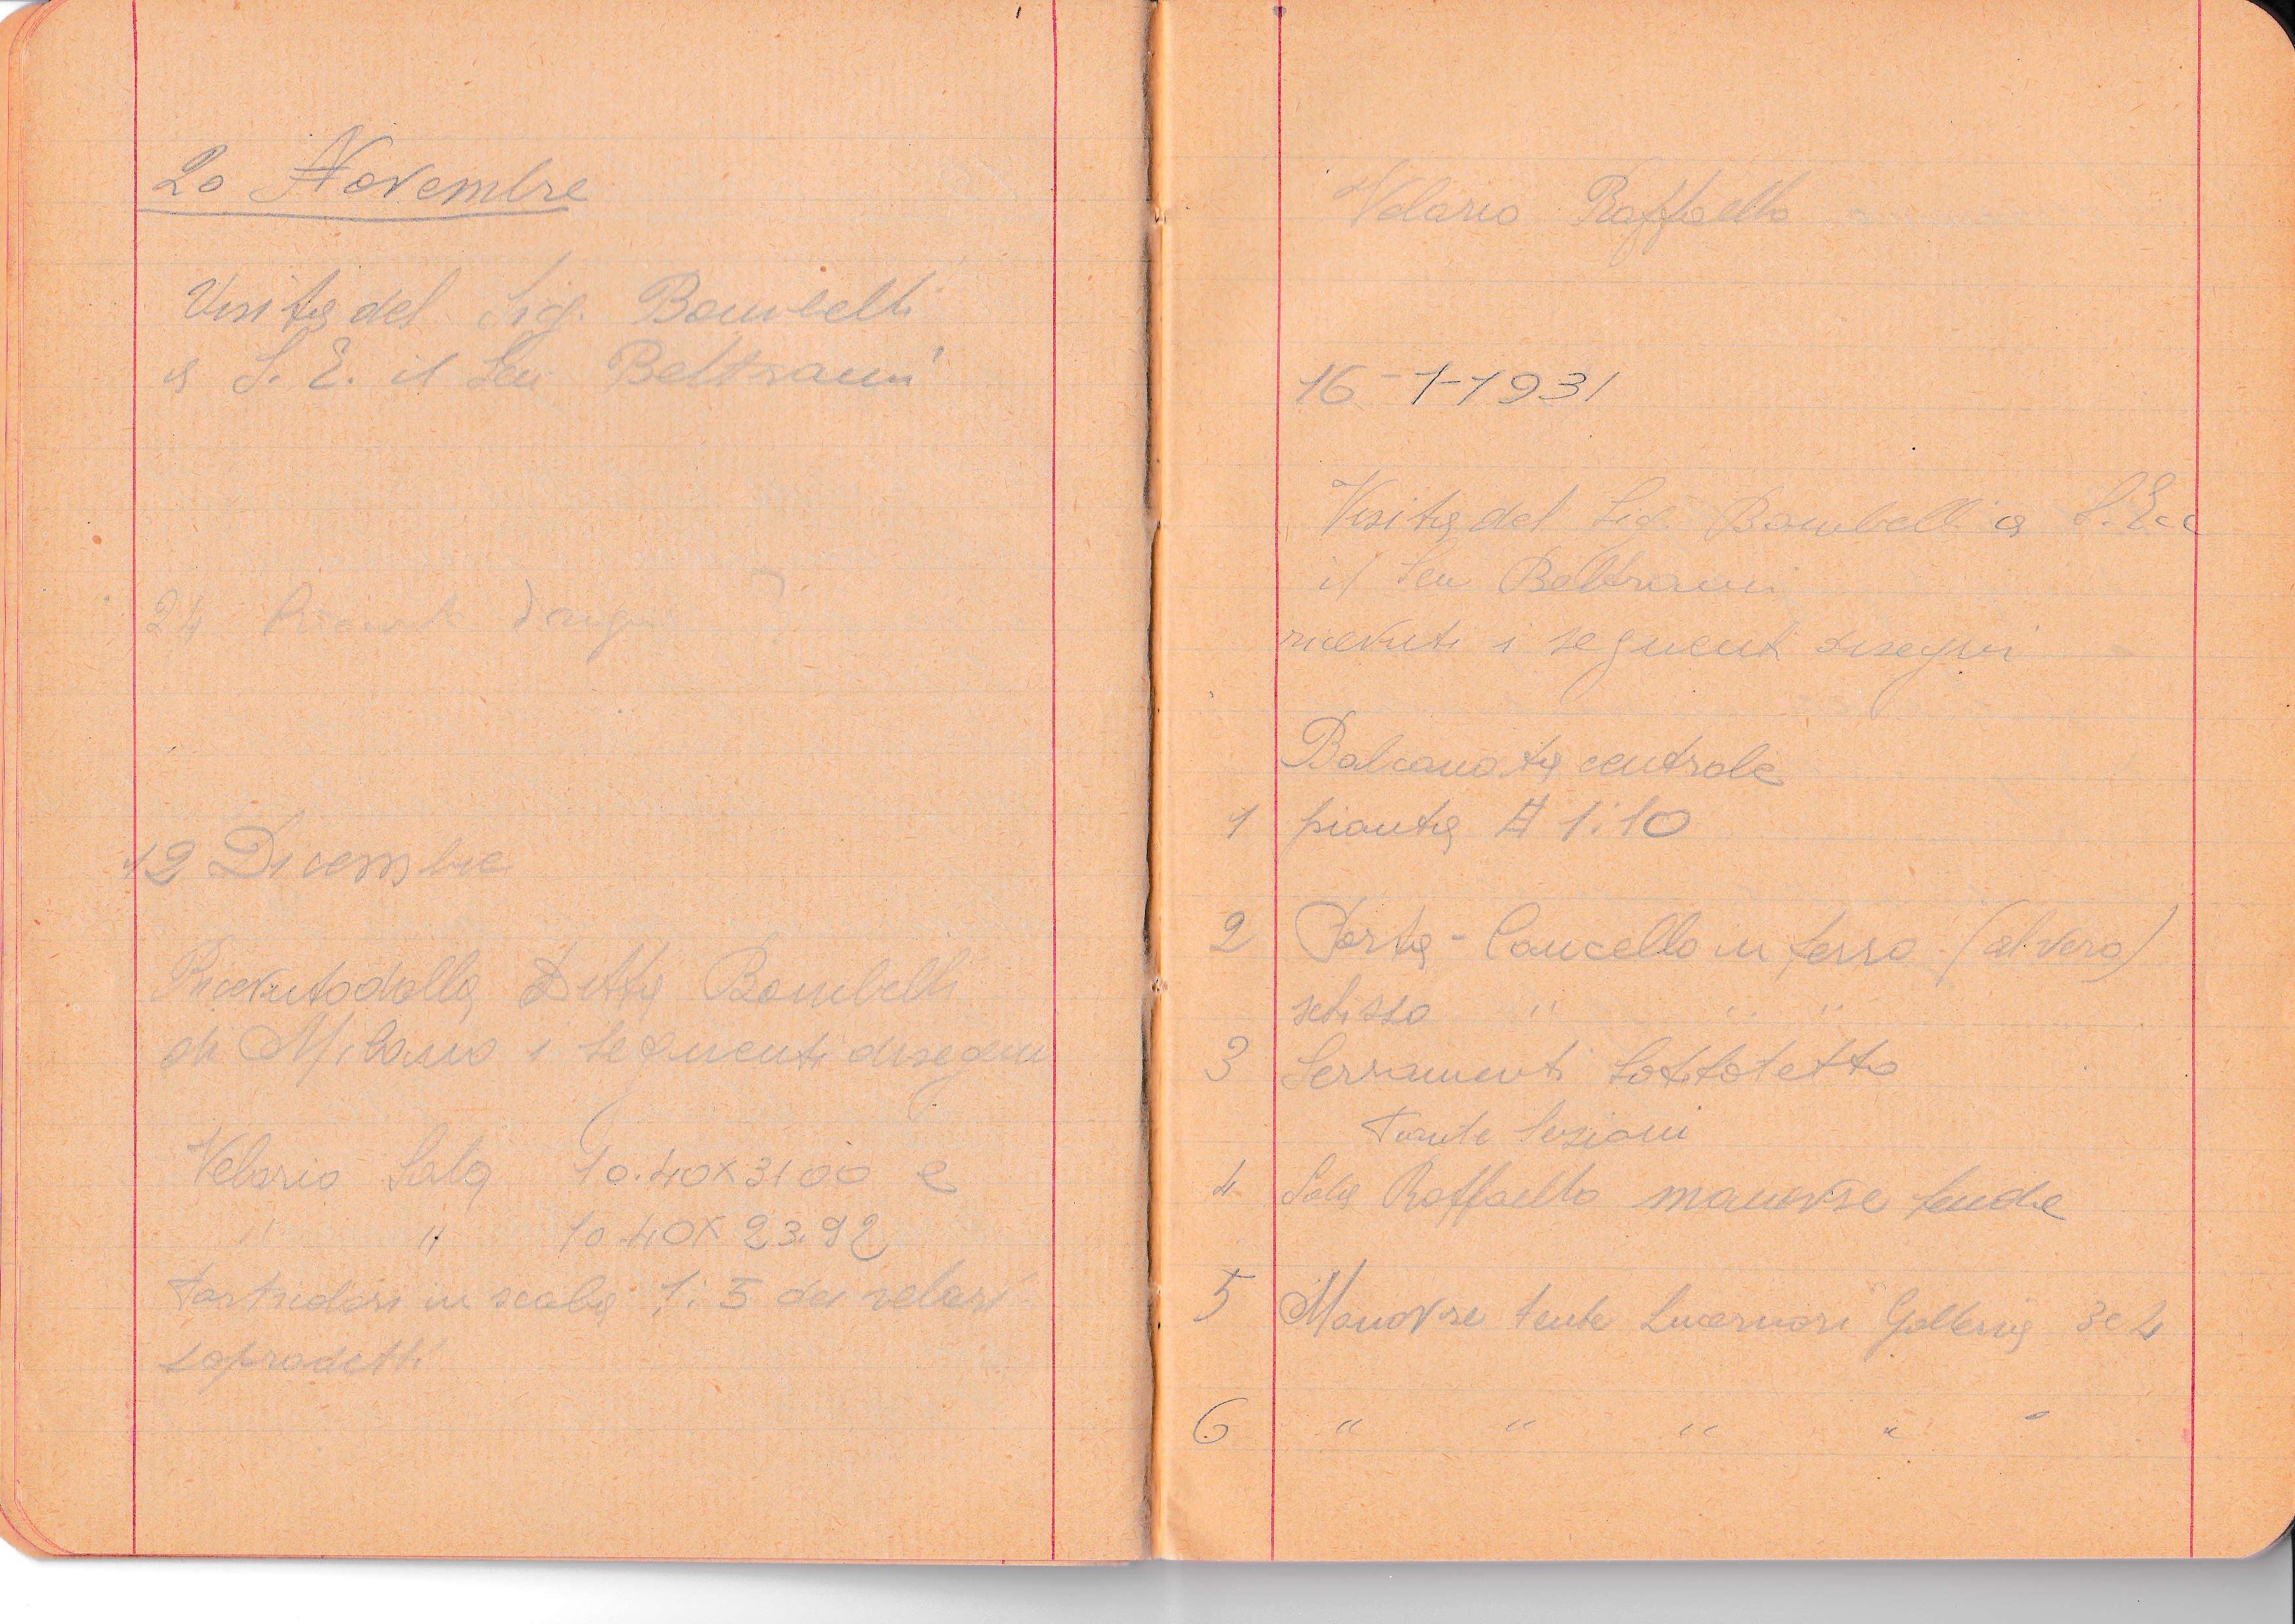 20 Novembre
Visita del Sig. Bombelli
a S. E. il Sen Beltrami
24
12 Dicembre
Ricevuto dalla Ditta Bombelli
di Milano i seguenti disegni
Velario Sala 10.40X3100 e
" " 10.40X23.92
Particolari in scala 1:5 dei velari
sopradetti
Velario Raffaello
16-1-1931
Visita del Sig. Bombelli a S. Ecc
il Sen Beltrami
ricevuti i seguenti disegni
Balconata centrale
1 pianta A 1:10
2 Porta-Cancello in ferro (al vero)
" " "
3 Serramenti Sottotetto
Sezioni
4 Sala Raffaello manovre tende
5 Manovre tende Lucernari Galleria 3 e 4
6 " " " " "